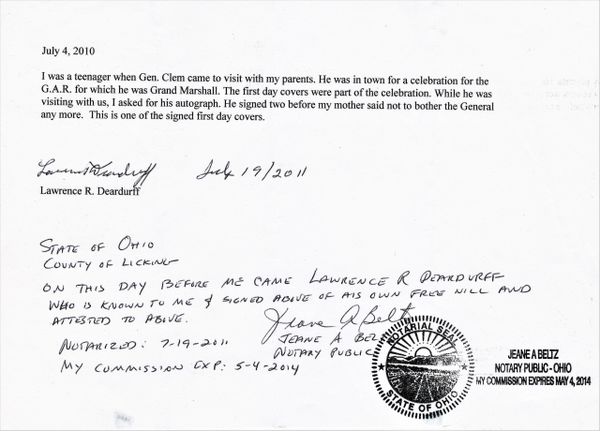 July 4, 2010
I was a teenager when Gen. Clem came to visit with my parents. He was in town for a celebration for the
G.A.R. for which he was Grand Marshall. The first day covers were part of the celebration. While he was
visiting with us, I asked for his autograph. He signed two before my mother said not to bother the General
any more. This is one of the signed first day covers.
Lawrence R Deardurff July 19/2011
Lawrence R. Deardurff
STATE OF OHIO
COUNTY OF LICKING
ON THIS DAY BEFORE ME CAME LAWRENCE R DEARDURFF
WHO IS KNOWN TO ME & SIGNED ABOVE OF HIS OWN FREE WILL AND
ATTESTED TO ABOVE.
Jeane A Beltz
NOTARIZED: 7-19-2011 JEANE A BEL
NOTARY PUBLIC
MY COMMISSION EXP: 5-4-2014
NOTARIAL SEAL
STATE OF OHIO
JEANE A BELTZ
NOTARY PUBLIC - OHIO
MY COMMISSION EXPIRES MAY 4, 2014